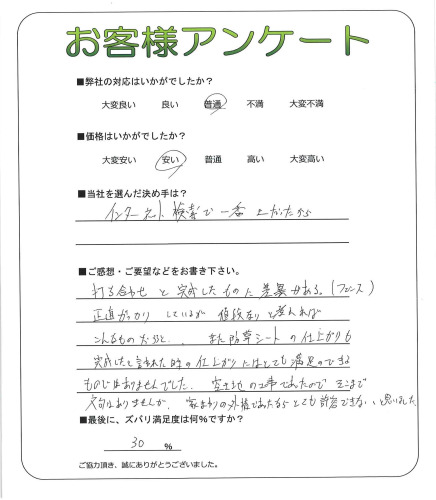 お客様アンケート
■弊社の対応はいかがでしたか？
大変良い 良い 普通 不満 大変不満
■価格はいかがでしたか？
大変安い 安い 普通 高い 大変高い
■当社を選んだ決め手は？
インターネット検索で一番上だったから
■ご感想・ご要望などをお書き下さい。
打ち合わせと完成したものに差異がある。(フェンス)
正直がっかりしているが値段なりと考えれば
こんなものだろうと、また防草シートの仕上がりも
完成したと言われた時の仕上がりにはとても満足のできる
ものではありませんでした。空き地の工事であったのでそこまで
文句はありませんが、家まわりの外構であったならとても許容できないと思いました
■最後に、ズバリ満足度は何%ですか？
30 %
ご協力頂き、誠にありがとうございました。